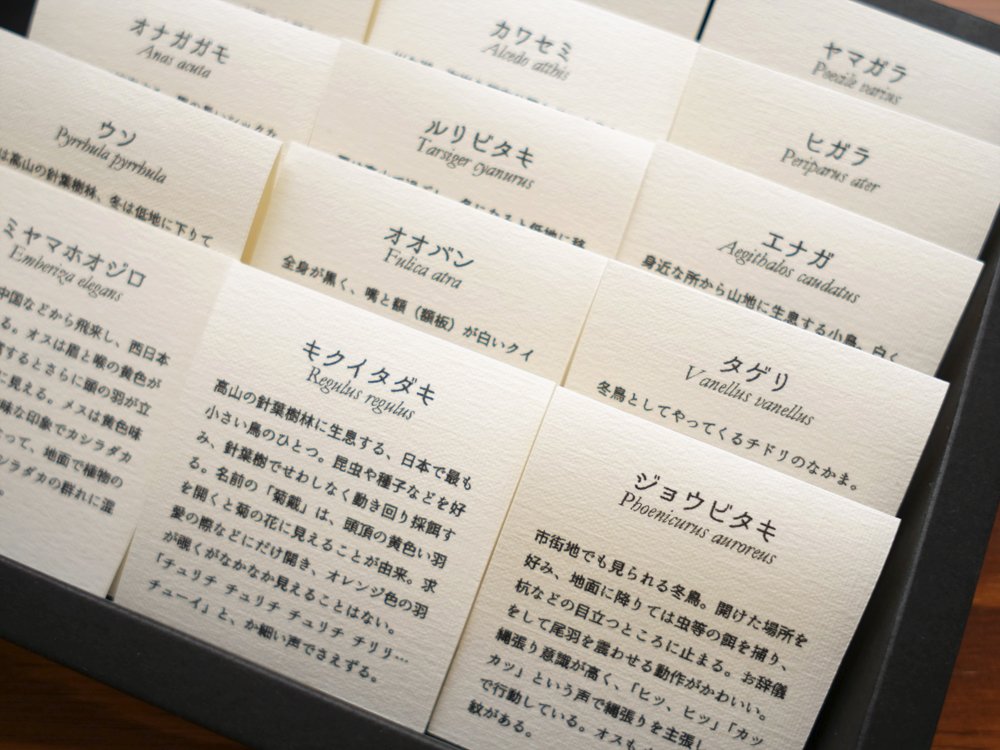 オナガガモ
Anas acuta
カワセミ
Alcedo atthis
ヤマガラ
Poecile varius
ウソ
Pyrrhula pyrrhula
は高山の針葉樹林、冬は低地に下りて
ルリビタキ
Tarsiger cyanurus
ヒガラ
Periparus ater
オオバン
Fulica atra
全身が黒く、嘴と額（額板）が白いクイ
エナガ
Aegithalos caudatus
身近な所から山地に生息する小鳥。白く
ミヤマホオジロ
Emberiza elegans
中国などから飛来し、西日本
る。オスは眉と喉の黄色が
するとさらに頭の羽が立
に見える。メスは黄色味
味な印象でカシラダカ
って、地面で植物の
シラダカの群れに混
。
キクイタダキ
Regulus regulus
高山の針葉樹林に生息する、日本で最も
小さい鳥のひとつ。昆虫や種子などを好
み、針葉樹でせわしなく動き回り採餌す
る。名前の「菊戴」は、頭頂の黄色い羽
を開くと菊の花に見えることが由来。求
愛の際などにだけ開き、オレンジ色の羽
が覗くがなかなか見えることはない。
「チュリチ チュリチ チュリチ チリリ…
チューイ」と、か細い声でさえずる。
タゲリ
Vanellus vanellus
冬鳥としてやってくるチドリのなかま。
ジョウビタキ
Phoenicurus auroreus
市街地でも見られる冬鳥。開けた場所を
好み、地面に降りては虫等の餌を捕り、
杭などの目立つところに止まる。お辞儀
をして尾羽を震わせる動作がかわいい。
縄張り意識が高く、「ヒッ、ヒッ」「カッ
カッ」という声で縄張りを主張し
で行動している。オスも
紋がある。